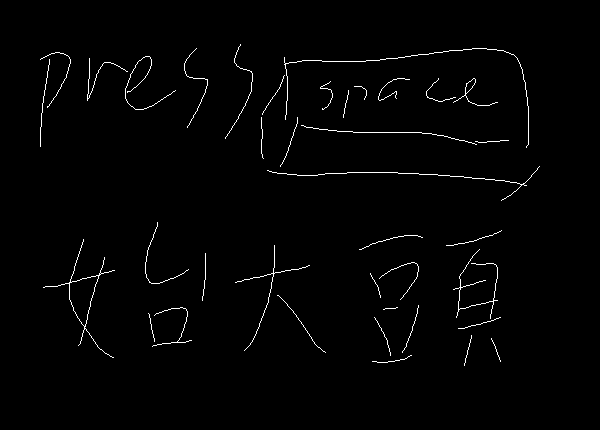 press space
始大頭